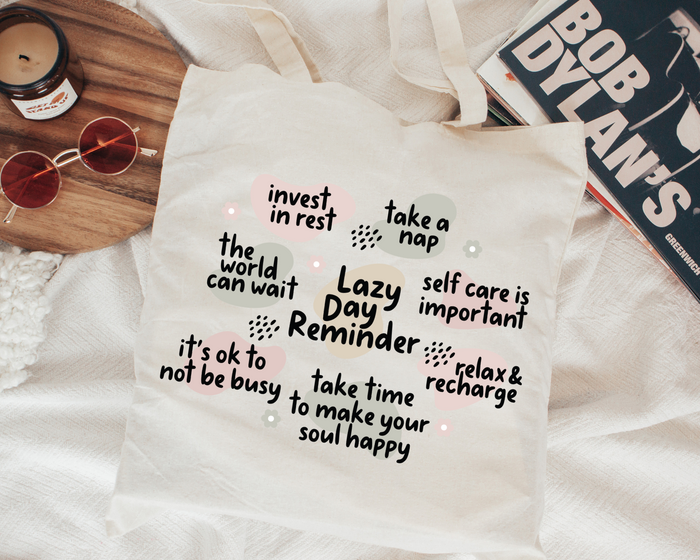 BOB
DYLAN'S
GREENWICH
invest
in rest
take a
nap
the
world
can wait
Lazy
Day
Reminder
self care is
important
it's ok to
not be busy
take time
to make your
soul happy
relax &
recharge